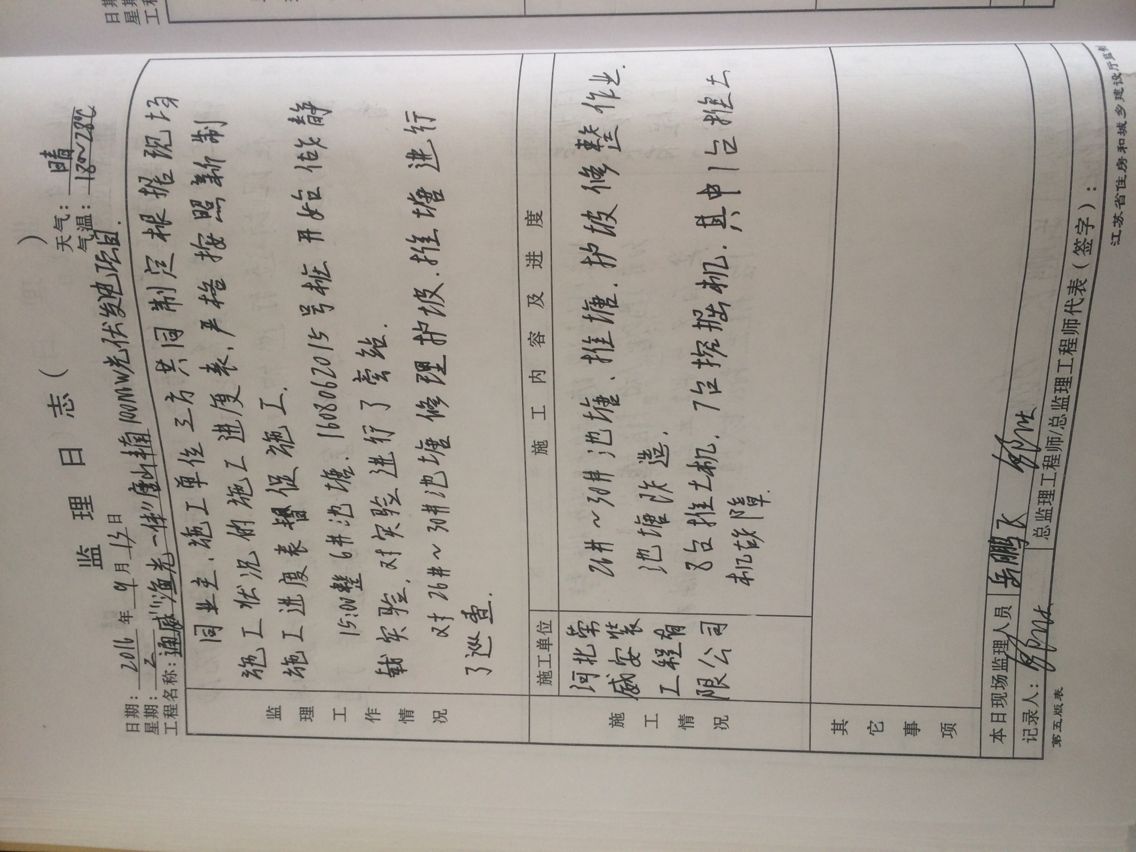 监 理 日 志（ ）
日期：2016 年 9 月 13 日 天气：晴
星期：二 气温：18~28℃
工程名称：通威“渔光一体”唐山丰南100MW光伏发电项目.
监理工作情况
同业主、施工单位三方共同制定根据现场
施工状况的施工进度表，严格按照新制
施工进度表督促施工.
15:00整 6#池塘. 160806201 5号桩开始做静
载实验，对实验进行了旁站.
对26#~30#池塘修理护坡、推塘进行
了巡查.
施工单位 施 工 内 容 及 进 度
施工情况
河北荣
威安装
工程有
限公司
26#~30#池塘、推塘、护坡修整作业.
池塘改造.
8台推土机，7台挖掘机，其中1台推土
机故障.
其它事项
本日现场监理人员 岳鹏飞
记录人： 总监理工程师/总监理工程师代表（签字）：
第五版表 江苏省住房和城乡建设厅监制